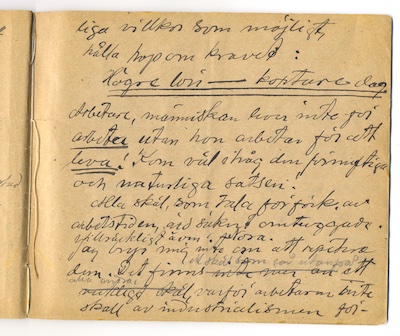 liga villkor som möjligt,
hålla hop om kravet:
Högre lön — kortare dag
Arbetare, människan lever inte för
arbetet utan hon arbetar för att
leva! Kom väl ihåg den förnuftiga
och naturliga satsen.
Alla skäl, som tala för förkort. av
arbetstiden, äro säkert omtuggade.
även flera.
Jag bryr mig inte om att repetera
dem. Det finns inte mer än ett
alla andra
riktigt skäl, varför arbetaren inte
skall av industrialismen för-